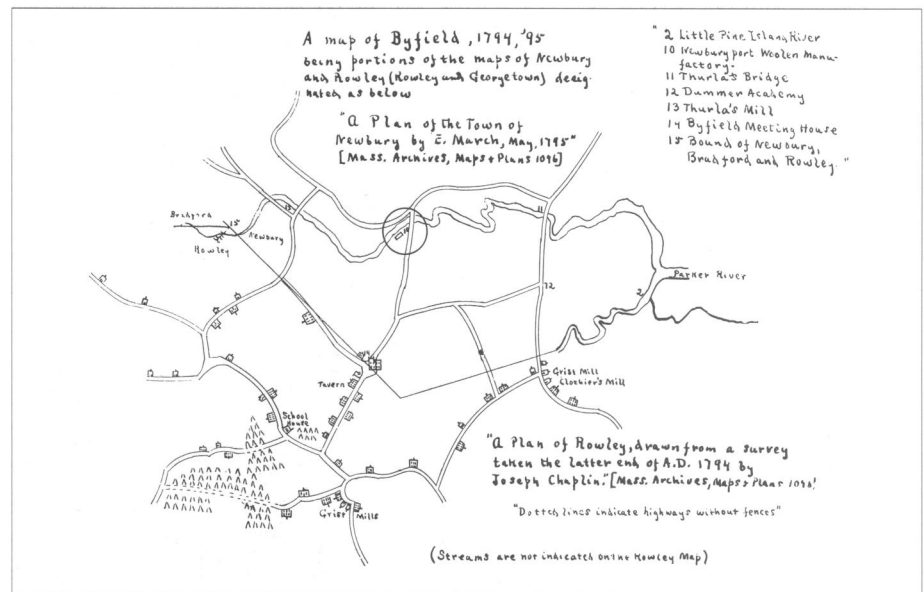 A map of Byfield, 1794, '95
being portions of the maps of Newbury
and Rowley (Rowley and Georgetown) desig-
nated as below
"A Plan of the Town of
Newbury by E. March, May, 1795"
[Mass. Archives, Maps & Plans 1096]
"2 Little Pine Island River
10 Newburyport Woolen Manu-
factory.
11 Thurla's Bridge
12 Dummer Academy
13 Thurla's Mill
14 Byfield Meeting House
15 Bound of Newbury,
Bradford and Rowley."
Bradford
15
Newbury
Rowley
13
10
11
Parker River
12
2
14
Tavern
Grist Mill
Clothier's Mill
School
House
Grist Mills
"A Plan of Rowley, drawn from a survey
taken the latter end of A.D. 1794 by
Joseph Chaplin." [Mass. Archives, Maps & Plans 1096]
"Dotted lines indicate highways without fences"
(Streams are not indicated on the Rowley Map)